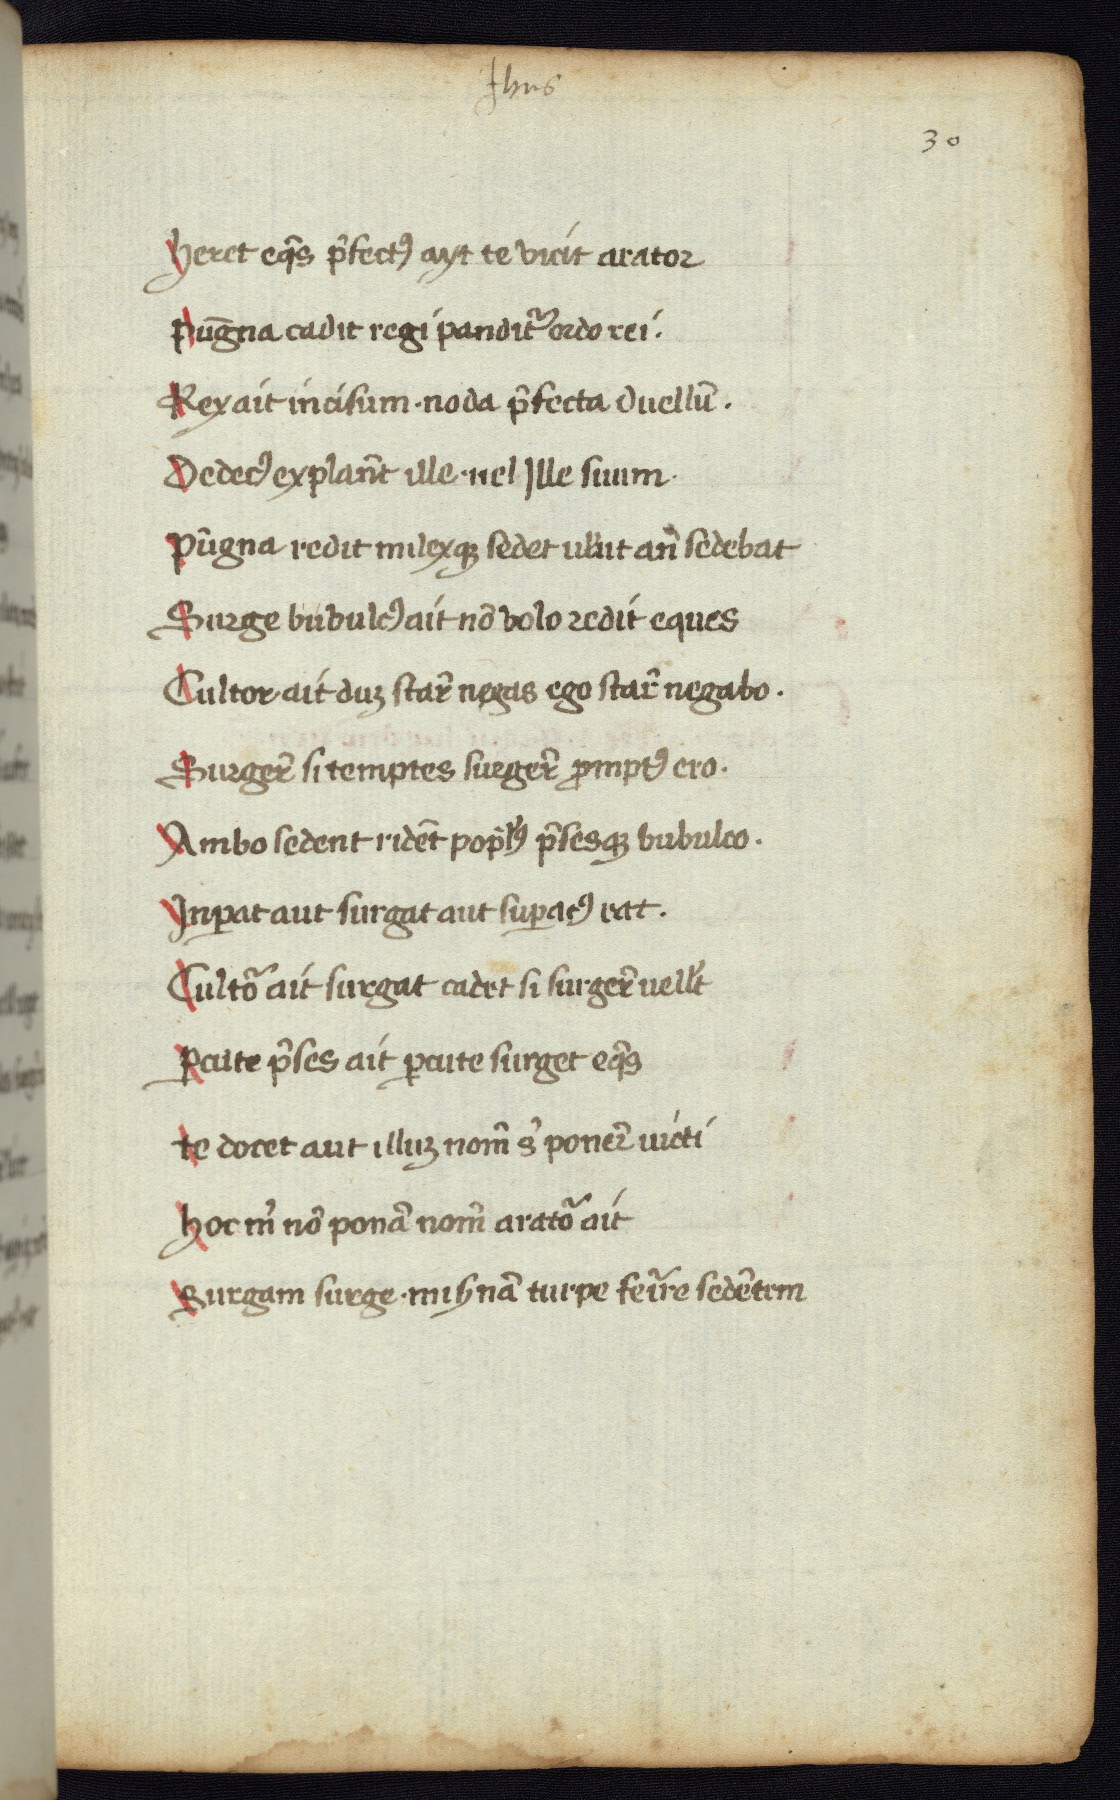 Jhus
30
Heret eq̃s p̃fectꝰ ayt te vicit arator
Pug̃na cadit regi panditᷣ ordo rei.
Rex ait incisum · noda p̃fecta duellũ.
Dedecꝰ explañt ille · uel Ille suum.
Pũgna redit milexqꝫ sedet ubi añ sedebat
Surge bubulcꝰ ait nõ volo redit eques
Cultor ait duꝫ star̃ negas ego star̃ negabo.
Surger̃ si temptes surger̃ ꝓmptꝰ ero.
Ambo sedent ridẽt p̃sesqꝫ bubulco.
Inꝑat aut surgat aut suꝑatꝰ eat.
Cultõ ait surgat cadet si surger̃ uell̃t
ꝑcute p̃ses ait ꝑcute surget eq̃s
te docet aut illuꝫ nom̃ s̉ poner̃ uicti
hoc m̉ nõ ponã nom̃ aratõ ait
Surgam surge · mihi nã turpe fer̃ire sedẽtem